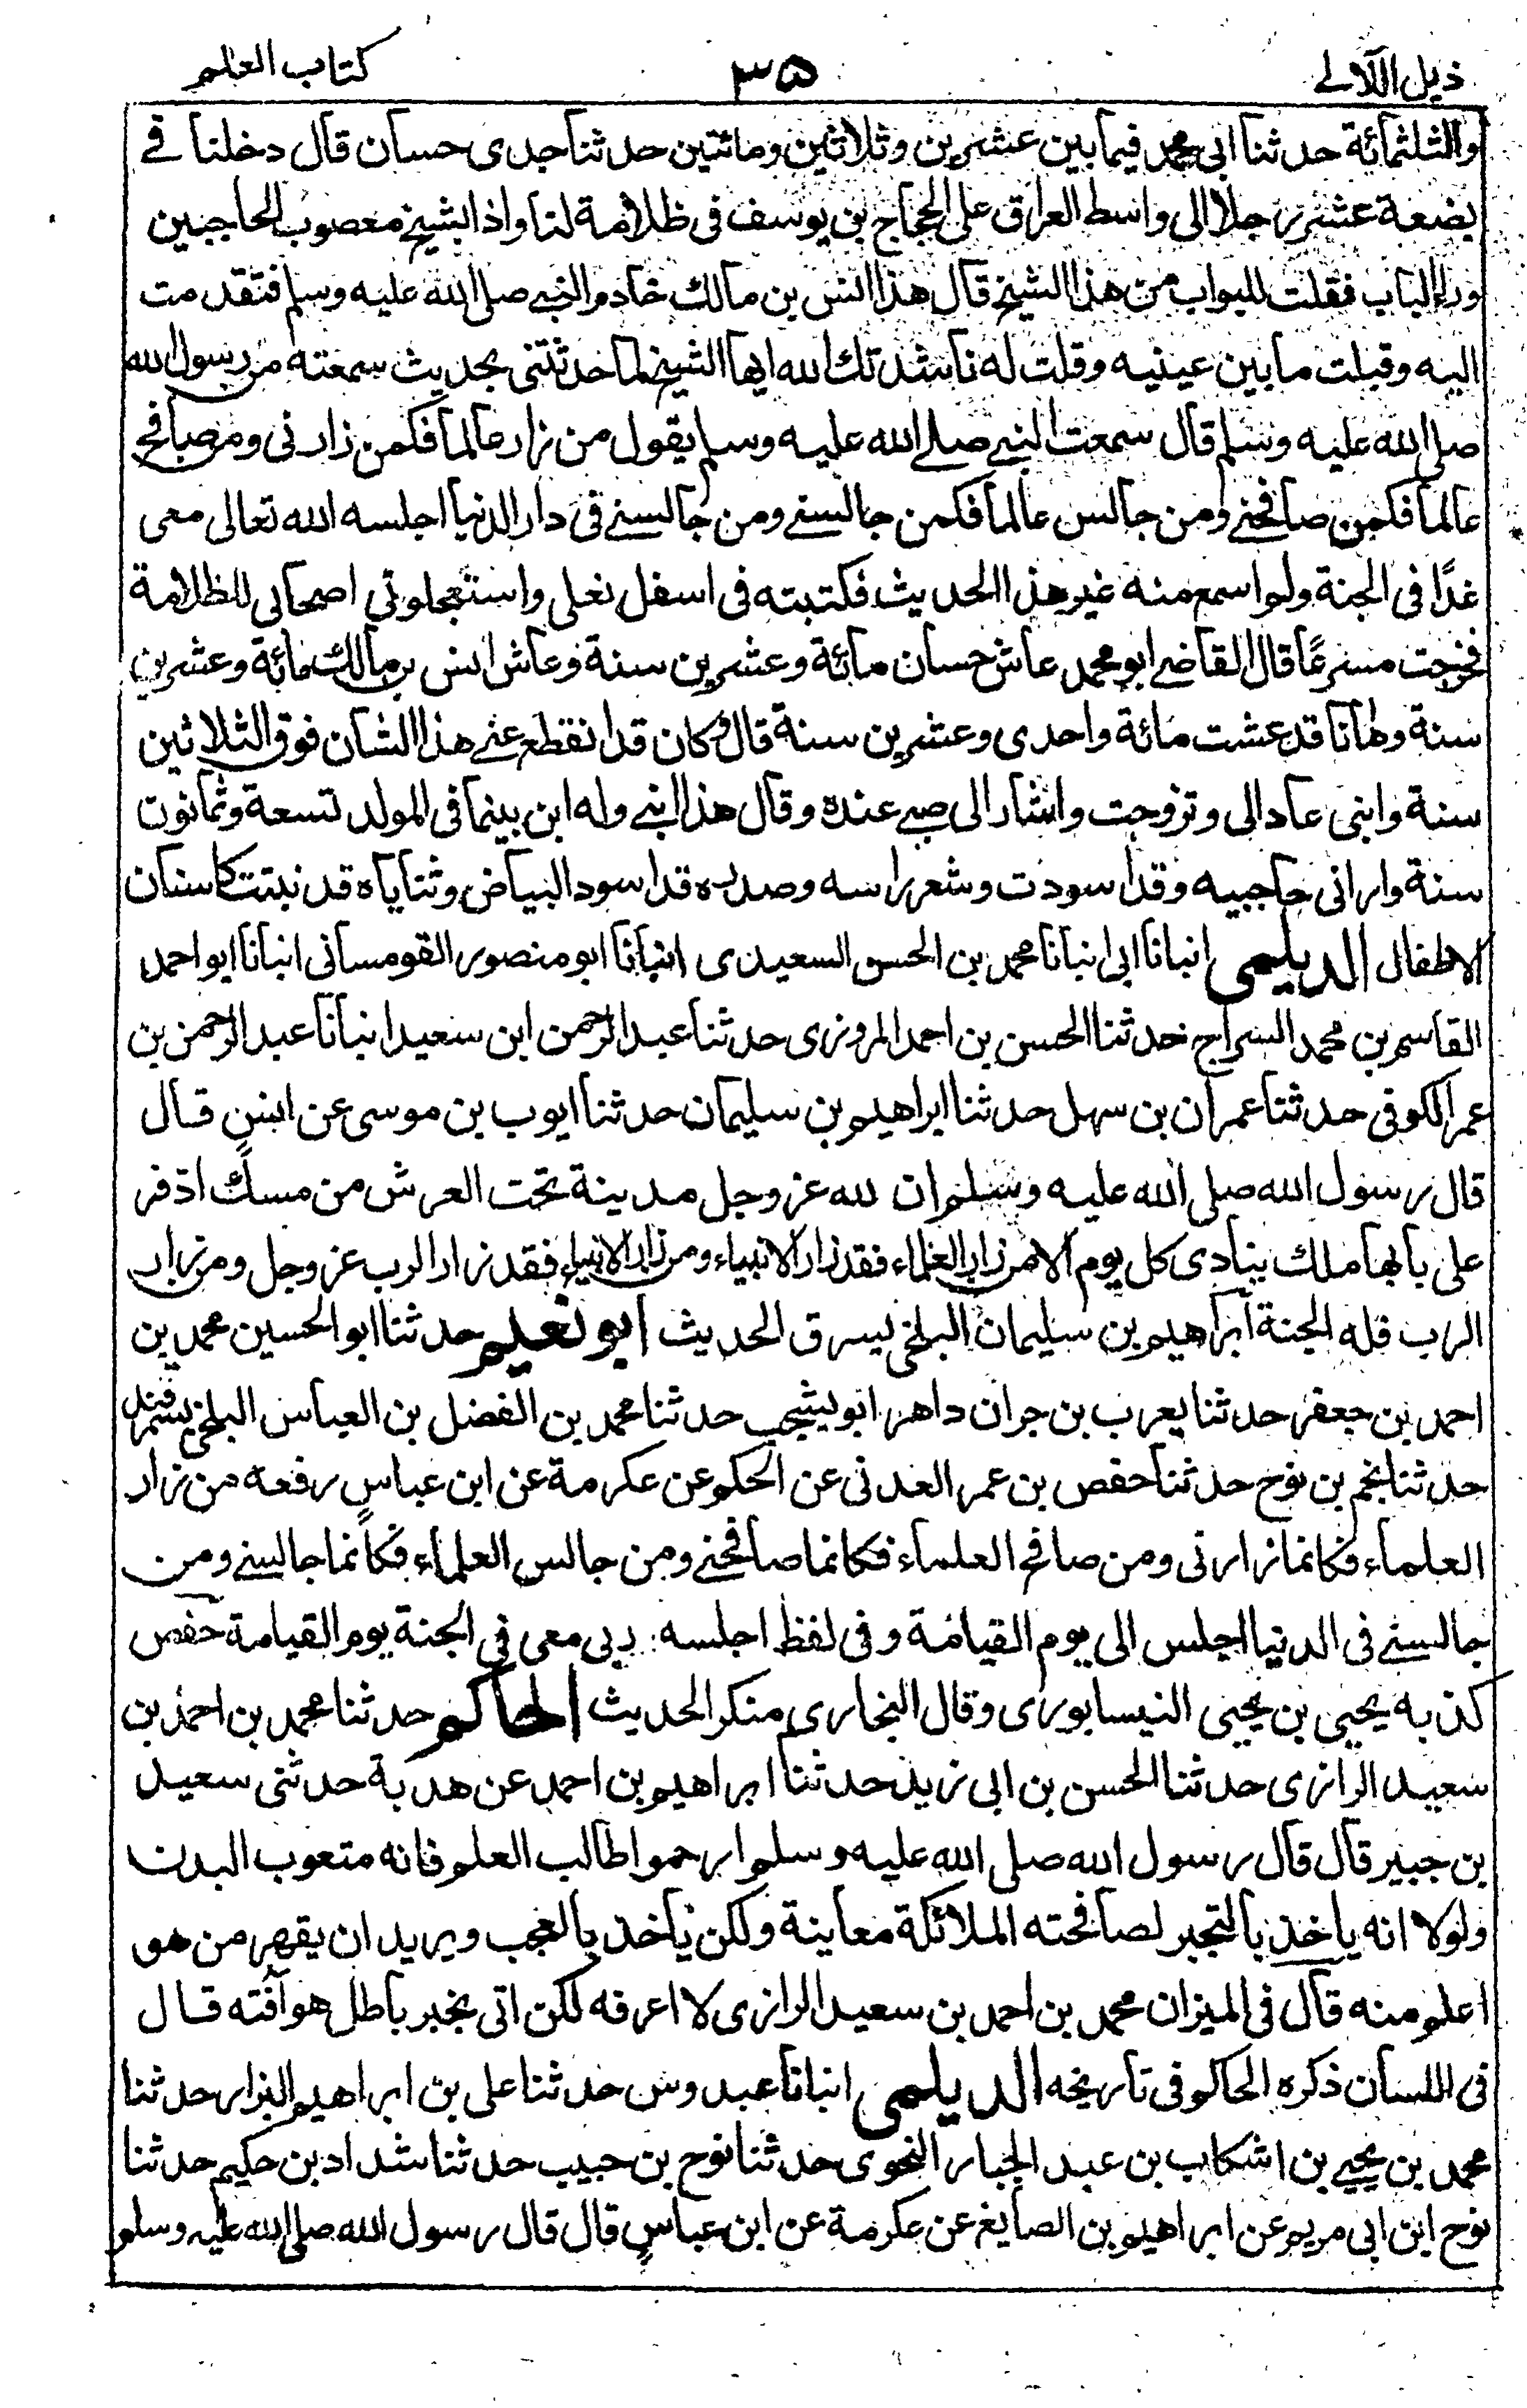 ذيل اللآلے ٣٥ كتاب العلم
والثلثمائة حدثنا ابى محمد فيما بين عشرين وثلاثين ومائتين حدثنا جدى حسان قال دخلنا فے
بضعة عشر رجلا الى واسط العراق على الحجاج بن يوسف فى ظلامة لنا واذا بشيخ معصوب الحاجبين
وراء الباب فقلت للبواب من هذا الشيخ قال هذا انس بن مالك خادم النبے صلى الله عليه وسلم فتقدمت
اليه وقبلت ما بين عينيه وقلت له ناشدتك الله ايها الشيخ لما حدثتنى بحديث سمعته من رسول الله
صلى الله عليه وسلم قال سمعت النبے صلے الله عليه وسلم يقول من زار عالما فكمن زارنى ومن صافح
عالما فكمن صافحنے ومن جالس عالما فكمن جالسنے ومن جالسنے فى دار الدنيا اجلسه الله تعالى معى
غدًا فى الجنة ولم اسمع منه غير هذا الحديث فكتبته فى اسفل نعلى واستعجلونى اصحابى للظلامة
فخرجت مسرعًا قال القاضے ابو محمد عاش حسان مائة وعشرين سنة وعاش انس بن مالك مائة وعشرين
سنة وها انا قد عشت مائة واحدى وعشرين سنة قال وكان قد انقطع عنے هذا الشان فوق الثلاثين
سنة وانى عاد الى وتزوجت واشار الى صبے عنده وقال هذا ابنے وله ابن بينهما فى المولد تسعة وثمانون
سنة وارانى حاجبيه وقد اسودت وشعر راسه وصدره قد اسود البياض وثناياه قد نبتت كاسنان
الاطفال الديلمى انبانا ابى انبانا محمد بن الحسن السعيدى انبانا ابو منصور القومسانى انبانا ابو احمد
القاسم بن محمد السراج حدثنا الحسن بن احمد المروزى حدثنا عبد الرحمن ابن سعيد انبانا عبد الرحمن بن
عمر الكوفى حدثنا عمران بن سهل حدثنا ابراهيم بن سليمان حدثنا ايوب بن موسى عن انسٍ قال
قال رسول الله صلى الله عليه وسلم ان لله عز وجل مدينة تحت العرش من مسك اذفر
على بابها ملك ينادى كل يوم الا من زار العلماء فقد زار الانبياء ومن زار الانبياء فقد زار الرب عز وجل ومن زار
الرب فله الجنة ابراهيم بن سليمان البلخى يسرق الحديث ابو نعيم حدثنا ابو الحسين محمد بن
احمد بن جعفر حدثنا يعرب بن جران داهر ابو يشجب حدثنا محمد بن الفضل بن العباس البلخى بسمرقند
حدثنا نجم بن نوح حدثنا حفص بن عمر العدنى عن الحكم عن عكرمة عن ابن عباسٍ رفعه من زار
العلماء فكانما زارنى ومن صافح العلماء فكانما صافحنے ومن جالس العلماء فكانما جالسنے ومن
جالسنے فى الدنيا اجلس الى يوم القيامة وفى لفظ اجلسه ربى معى فى الجنة يوم القيامة حفص
كذبه يحيى بن يحيى النيسابورى وقال البخارى منكر الحديث الحاكم حدثنا محمد بن احمد بن
سعيد الرازى حدثنا الحسن بن ابى زيد حدثنا ابراهيم بن احمد عن هدبة حدثنى سعيد
بن جبير قال قال رسول الله صلى الله عليه وسلم ارحموا طالب العلم فانه متعوب البدن
ولولا انه ياخذ بالتجبر لصافحته الملائكة معاينة ولكن ياخذ بالعجب ويريد ان يقهر من هو
اعلم منه قال فى الميزان محمد بن احمد بن سعيد الرازى لا اعرفه لكن اتى بخبر باطل هو آفته قال
فى اللسان ذكره الحاكم فى تاريخه الديلمى انبانا عبدوس حدثنا على بن ابراهيم البزار حدثنا
محمد بن يحيے بن اشكاب بن عبد الجبار النحوى حدثنا نوح بن حبيب حدثنا شداد بن حكيم حدثنا
نوح ابن ابى مريم عن ابراهيم بن الصايغ عن عكرمة عن ابن عباسٍ قال قال رسول الله صلى الله عليه وسلم